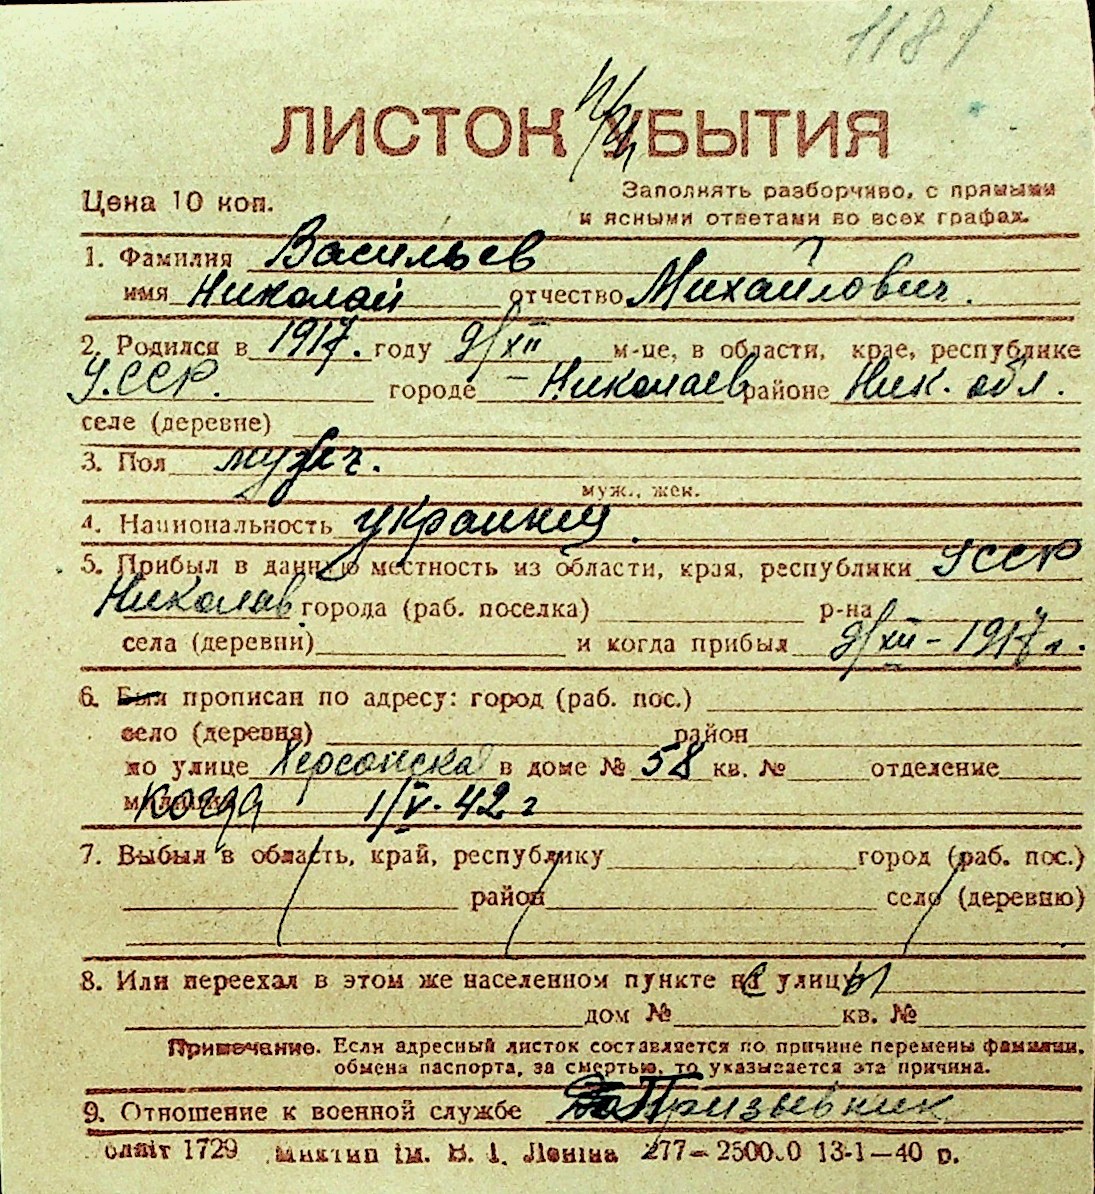 1181
ЛИСТОК УБЫТИЯ
Цена 10 коп.
Заполнять разборчиво, с прямыми
и ясными ответами во всех графах.
1. Фамилия Васильев
имя Николай отчество Михайлович.
2. Родился в 1917. году 9/XII м-це, в области, крае, республике
УССР. городе – Николаев районе Ник. обл.
селе (деревне)
3. Пол мужч.
муж., жен.
4. Национальность украинец.
5. Прибыл в данную местность из области, края, республики УССР
Николаев города (раб. поселка) р-на
села (деревни) и когда прибыл 9/XII – 1917 г.
6. Был прописан по адресу: город (раб. пос.)
село (деревня) район
по улице Херсонска в доме № 58 кв. № отделение
милиции когда 1/V-42 г
7. Выбыл в область, край, республику город (раб. пос.)
район село (деревню)
8. Или переехал в этом же населенном пункте с улицы
дом № кв. №
Примечание. Если адресный листок составляется по причине перемены фамилии,
обмена паспорта, за смертью, то указывается эта причина.
9. Отношение к военной службе Призывник
1729 ім. В. І. Леніна 277–2500.0 13-1–40 р.